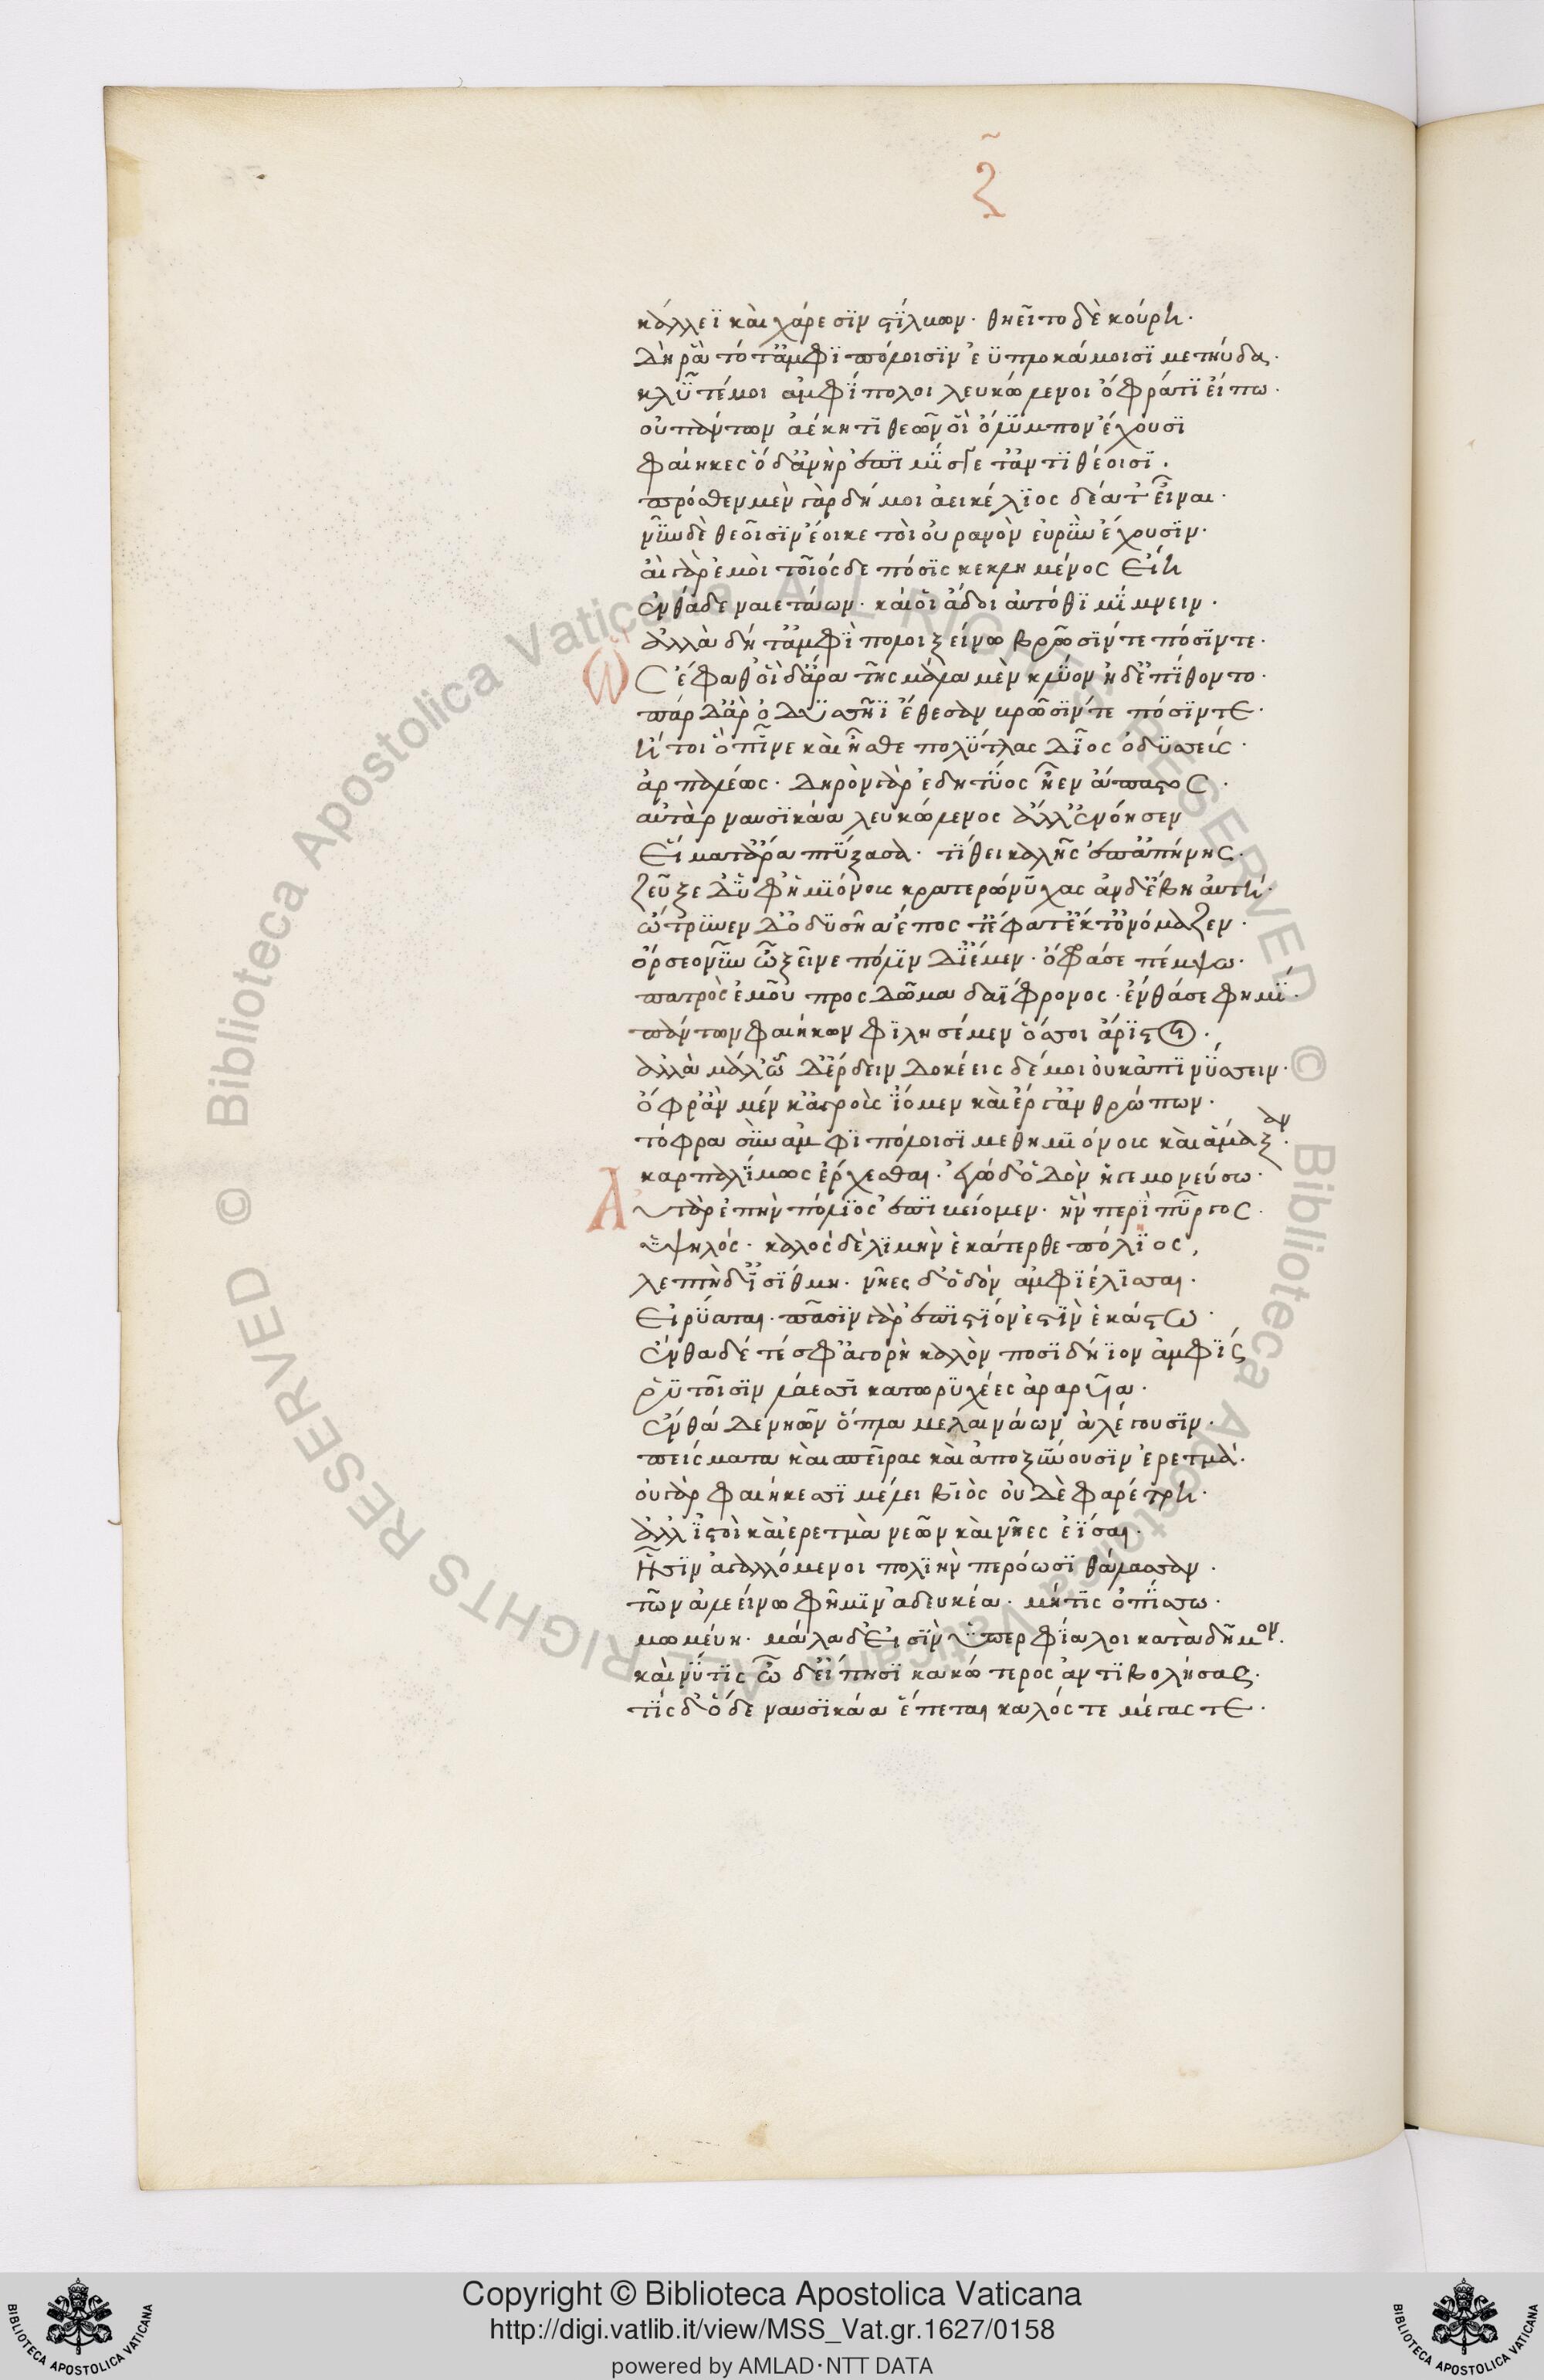 ζ
κάλλεϊ καὶ χάρεσϊν ςΐλβων· θηεῖτο δὲ κούρη·
δή ῥα τότ' ἀμφϊπόλοισϊν ἐϋπλοκάμοισϊ μετηύδα·
κλῦτέ μοι ἀμφΐπολοι λευκώλενοι ὄφρά τϊ εἴπω·
οὐ πάντων ἀέκητϊ θεῶν οἳ ὄλϋμπον ἔχουσϊ
φαιήκεσ' ὅδ' ἀνὴρ ἐπϊμΐσγεται ἀντϊθέοισϊ.
πρόσθεν μὲν γὰρ δή μοι ἀεικέλϊος δέατ' εἶναι·
νῦν δὲ θεοῖσϊν ἔοικε τοὶ οὐρανὸν εὐρὺν ἔχουσϊν·
αἲ γὰρ ἐμοὶ τοιόσδε πόσϊς κεκλημένος εἴη
ἐνθάδε ναιετάων· καί οἱ ἅδοι αὐτόθϊ μΐμνειν·
ἀλλὰ δότ' ἀμφΐπολοι ξείνω βρῶσϊν τε πόσϊν τε·
Ὣς ἔφαθ' οἳ δ' ἄρα τῆς μάλα μὲν κλύον ἠδ' ἐπΐθοντο·
πὰρ δ' ἄρ' ὀδυσσῆϊ ἔθεσαν βρῶσϊν τε πόσϊν τε·
ἤτοι ὃ πῖνε καὶ ἦσθε πολΰτλας δῖος ὀδϋσσεύς·
ἁρπαλέως· δηρὸν γὰρ ἐδητΰος ἦεν ἄπαστος·
αὐτὰρ ναυσϊκάα λευκώλενος ἄλλ' ἐνόησεν
εἵματ' ἄρα πτΰξασα· τΐθει καλῆς ἐπ' ἀπήνης·
ζεῦξε δ' ὑφ' ἡμϊόνους κρατερώνϋχας ἂν δ' ἔβη αὐτή·
ὤτρϋνεν δ' ὀδϋσῆα ἔπος τ' ἔφατ' ἔκ τ' ὀνόμαζεν·
ὄρσεο νῦν ὦ ξεῖνε πόλϊν δ' ἴμεν· ὄφρά σε πέμψω·
πατρὸς ἐμοῦ προς δῶμα δαΐφρονος· ἔνθά σε φημΐ·
πάντων φαιήκων εϊδησέμεν ὅσσοι ἄρϊςοι·
ἀλλὰ μάλ' ὧδ' ἔρδειν δοκέεις δέ μοι οὐκ ἀπϊνΰσσειν·
ὄφρ' ἂν μέν κ' ἀγροὺς ἴομεν καὶ ἔργ' ἀνθρώπων·
τόφρα σὺν ἀμφϊπόλοισϊ μεθ' ημϊόνους καὶ ἅμαξαν·
καρπαλΐμως ἔρχεσθαι· ἐγὼ δ' ὁδὸν ἡγεμονεύσω·
Αὐτὰρ ἐπὴν πόλϊος ἐπϊβείομεν· ἣν περῒ πῦργος·
ϋψηλός· καλὸς δὲ λϊμὴν ἑκάτερθε πόλϊος,
λεπτὴ δ' εἰσΐθμη· νῆες δ' ὁδὸν ἀμφϊέλϊσσαι·
εἰρΰαται· πᾶσϊν γὰρ ἐπΐςϊόν ἐςῒν ἑκάςω·
ἔνθα δέ τέ σφ' ἀγορὴ καλὸν ποσϊδήϊον ἀμφΐς
ῥϋτοῖσϊν λάεσσϊ κατωρϋχέεσ' ἀραρυῖα·
ἔνθα δε νηῶν ὅπλα μελαινάων ἀλέγουσϊν·
πείσματα καὶ σπεῖρας καὶ ἀποξΰνουσϊν ἐρετμά·
οὐ γὰρ φαιήκεσσϊ μέλει βϊὸς οὐδὲ φαρέτρη·
ἀλλ' ἱςοὶ καὶ ἐρετμὰ νεῶν καὶ νῆες ἐΐσαι·
ᾗσϊν ἀγαλλόμενοι πολϊὴν περόωσϊ θάλασσαν·
τῶν ἀλεείνω φῆμϊν ἀδευκέα· μή τϊς ὀπΐσσω·
μωμεύη· μάλα δ' εἰσῒν ϋπερφΐαλοι κατὰ δῆμον·
καὶ νΰ τϊς ὧδ' εἴπησϊ κακώτερος ἀντϊβολήσας·
τΐς δ' ὅδε ναυσϊκάα ἕπεται καλός τε μέγας τε·
Copyright © Biblioteca Apostolica Vaticana
http://digi.vatlib.it/view/MSS_Vat.gr.1627/0158
powered by AMLAD·NTT DATA
BIBLIOTECA APOSTOLICA VATICANA
BIBLIOTECA APOSTOLICA VATICANA
© Biblioteca Apostolica Vaticana ALL RIGHTS RESERVED
© Biblioteca Apostolica Vaticana ALL RIGHTS RESERVED